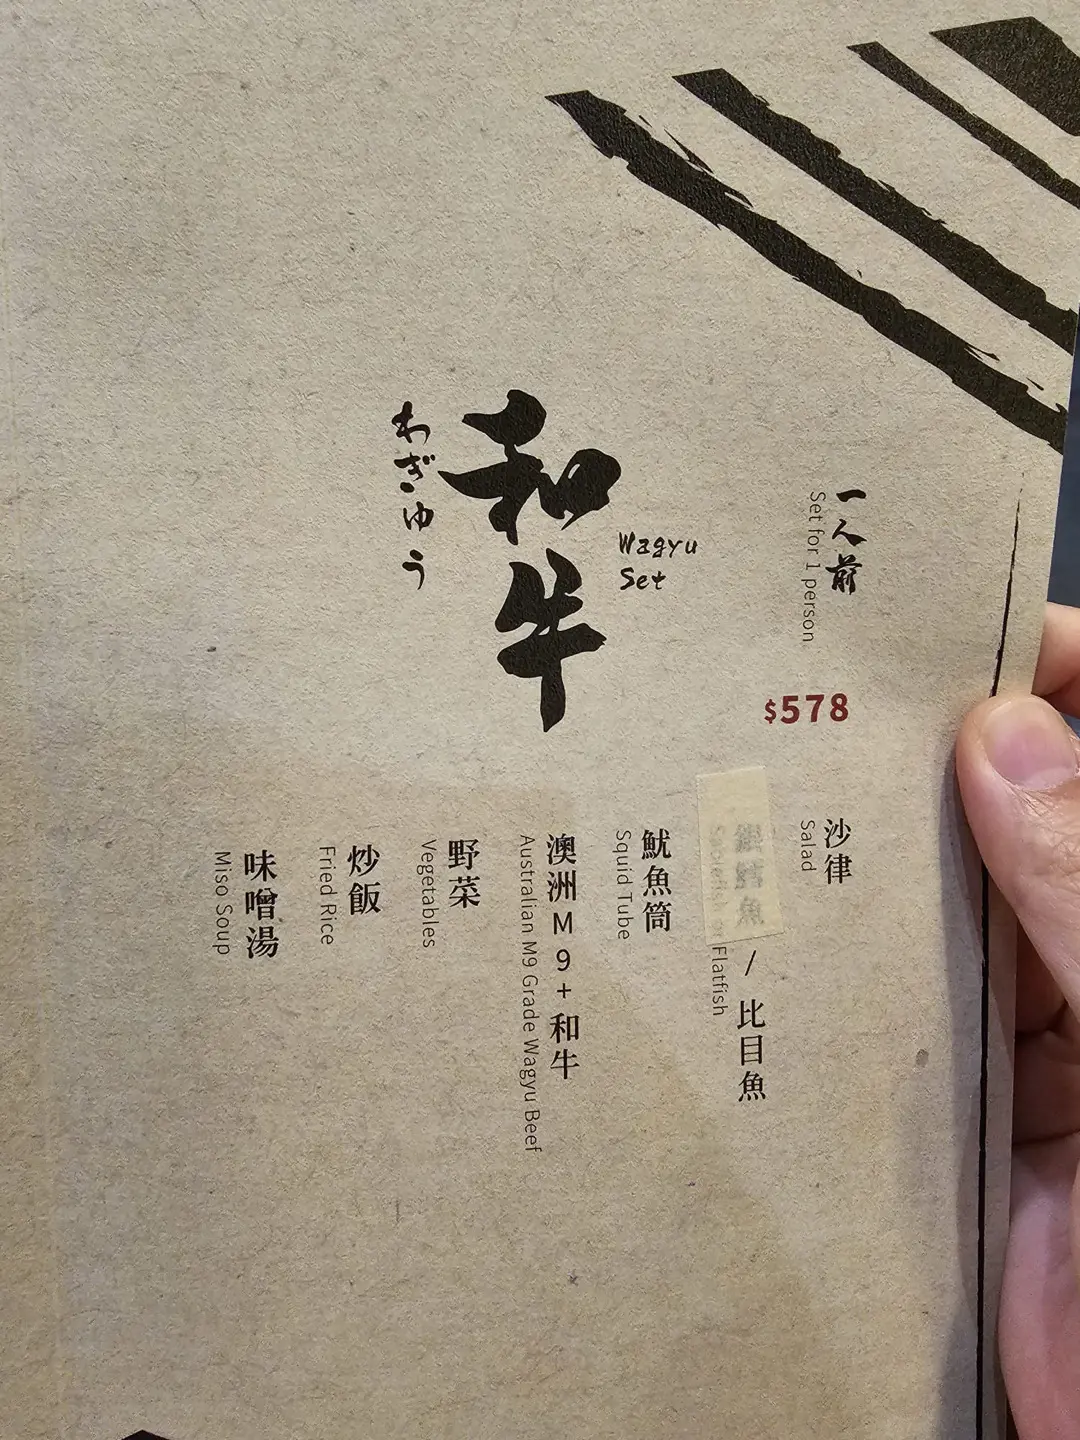 一人前
Set for 1 person
$578
和牛
Wagyu
Set
わぎゅう
沙律
Salad
/ 比目魚
Flatfish
魷魚筒
Squid Tube
澳洲M9+和牛
Australian M9 Grade Wagyu Beef
野菜
Vegetables
炒飯
Fried Rice
味噌湯
Miso Soup